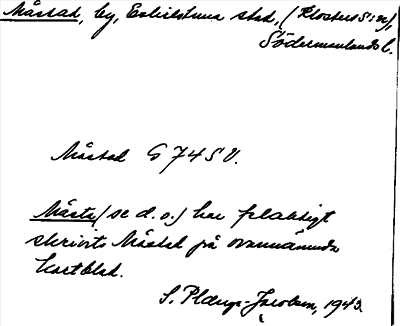 Måstad, by, Eskilstuna stad, (Klosters s:n),
Södermanlands l.
Måstad G 74 SV.
Måsta (se d.o.) har felaktigt
skrivits Måstad på ovannämnda
kartblad.
S. Jacobsen, 1943.